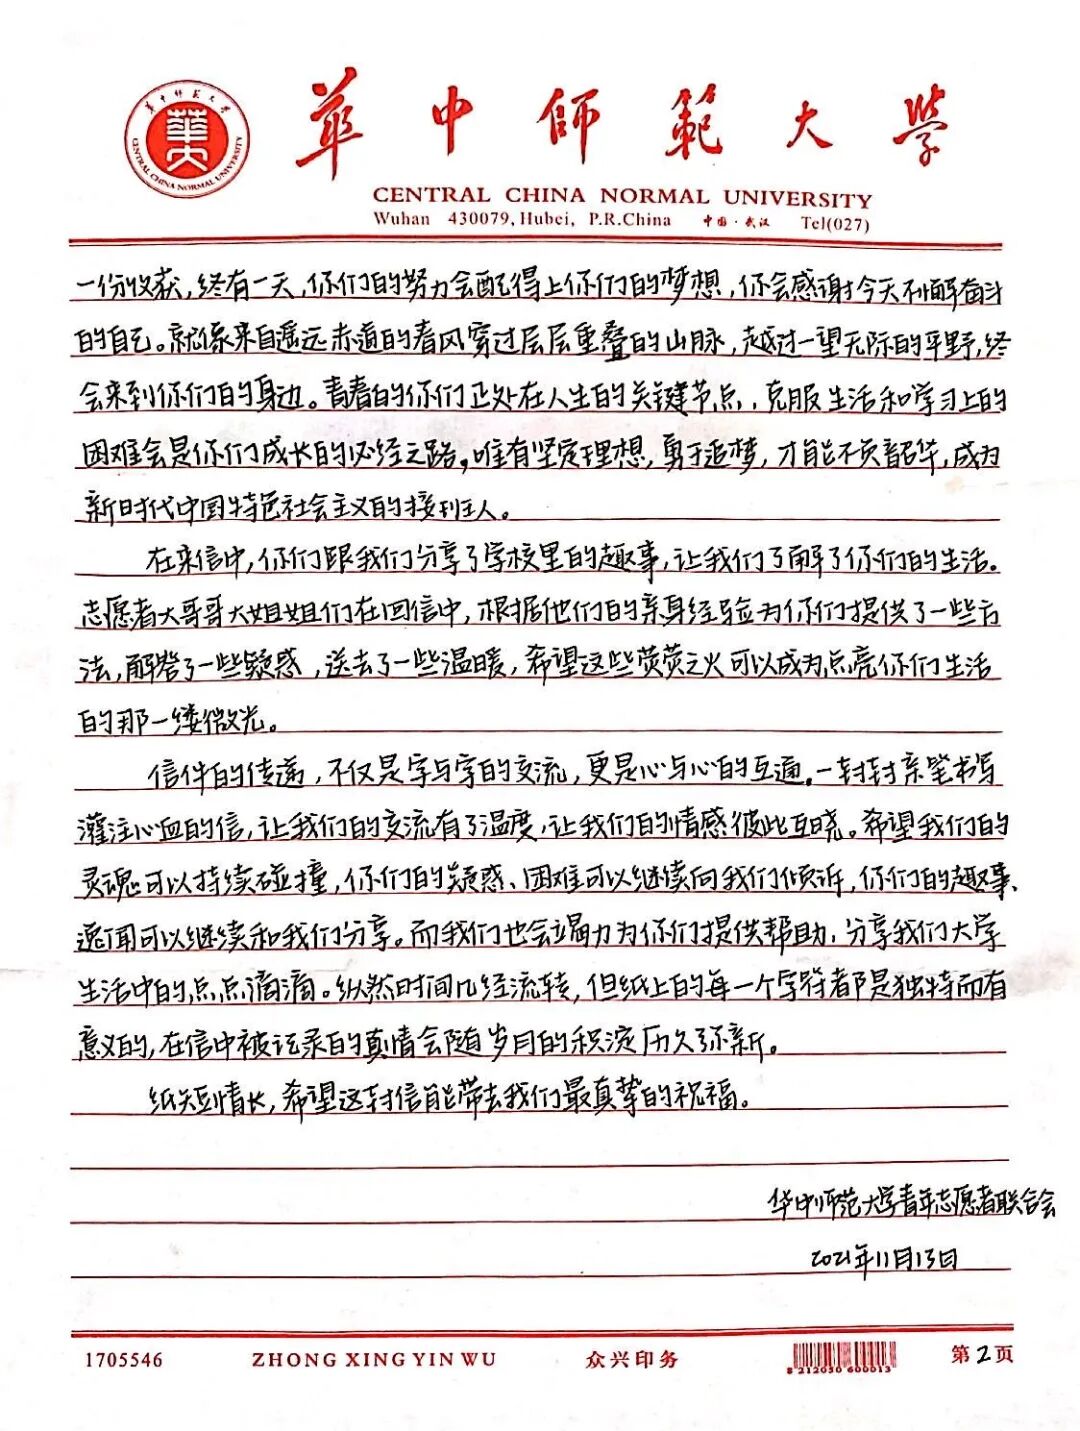 華中師範大學
華中師範大學
CENTRAL CHINA NORMAL UNIVERSITY
CENTRAL CHINA NORMAL UNIVERSITY
Wuhan 430079, Hubei, P.R.China 中国·武汉 Tel(027)
一份收获,终有一天,你们的努力会配得上你们的梦想,你会感谢今天不懈奋斗
的自己。就像来自遥远赤道的春风穿过层层重叠的山脉,越过一望无际的平野,终
会来到你们的身边。青春的你们正处在人生的关键节点,克服生活和学习上的
困难会是你们成长的必经之路。唯有坚定理想,勇于追梦,才能不负韶华,成为
新时代中国特色社会主义的接班人。
在来信中,你们跟我们分享了学校里的趣事,让我们了解了你们的生活。
志愿者大哥哥大姐姐们在回信中,根据他们的亲身经验为你们提供了一些方
法,解答了一些疑惑,送去了一些温暖,希望这些荧荧之火可以成为点亮你们生活
的那一缕微光。
信件的传递,不仅是字与字的交流,更是心与心的互通。一封封亲笔书写
灌注心血的信,让我们的交流有了温度,让我们的情感彼此互晓。希望我们的
灵魂可以持续碰撞,你们的疑惑、困难可以继续向我们倾诉,你们的趣事、
逸闻可以继续和我们分享。而我们也会竭力为你们提供帮助,分享我们大学
生活中的点点滴滴。纵然时间几经流转,但纸上的每一个字符都是独特而有
意义的,在信中被记录的真情会随岁月的积淀历久弥新。
纸短情长,希望这封信能带去我们最真挚的祝福。
华中师范大学青年志愿者联合会
2021年11月13日
1705546 ZHONG XING YIN WU 众兴印务 8 212030 600013 第2页